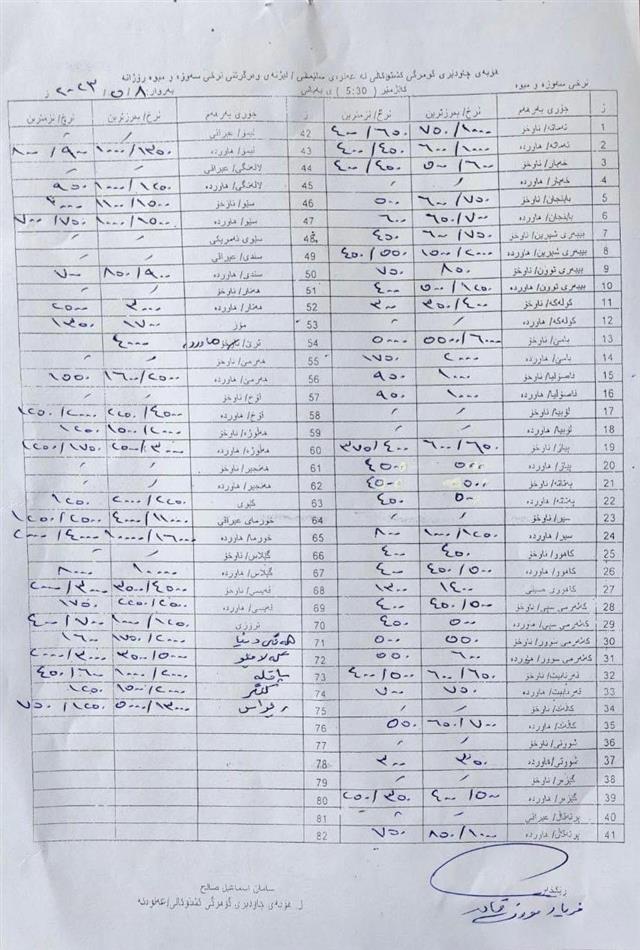 هۆبەی چاودێری گومرگی کشتوکاڵی لە عەلوەی سلێمانی / لیژنەی وەرگرتنی نرخی سەوزە و میوە ڕۆژانە
نرخی سەوزە و میوە کاتژمێر ( 5:30 ) ی بەیانی بەروار ٨ / ٥ / ٢٠٢٣ ز
ز جۆری بەرهەم نرخ/ بەرزترین نرخ/ نزمترین ز جۆری بەرهەم نرخ/ بەرزترین نرخ/ نزمترین
1 تەماتە/ ناوخۆ ٧٥٠/١٠٠٠ ٤٠٠/٦٥٠ 42 لیمۆ/ عیراقی
2 تەماتە/ هاوردە ٦٠٠/١٠٠٠ ٤٠٠/٤٥٠ 43 لیمۆ/ هاوردە ١٠٠٠/١٣٥٠ ٨٠٠/٩٠٠
3 خەیار/ ناوخۆ ٥٠٠/٦٠٠ ٤٠٠/٤٥٠ 44 لالەنگی/ عیراقی
4 خەیار/ هاوردە 45 لالەنگی/ هاوردە ١٠٠٠/١٢٥٠ ٩٥٠
5 باینجان/ ناوخۆ ٦٠٠/٧٥٠ ٥٠٠ 46 سێو/ ناوخۆ
6 باینجان/ هاوردە ٦٥٠/٧٠٠ ٦٠٠ 47 سێو/ هاوردە ١٠٠٠/١٥٠٠ ٧٠٠/٧٥٠
7 بیبەری شیرین/ ناوخۆ ٦٠٠/٧٥٠ ٤٥٠ 48 سێوی ئەمریکی
8 بیبەری شیرین/ هاوردە ١٥٠٠/٢٠٠٠ ٤٥٠/٥٥٠ 49 سندی/ عیراقی
9 بیبەری توون/ ناوخۆ ٨٥٠ ٧٥٠ 50 سندی/ هاوردە ٨٥٠/٩٠٠ ٧٠٠
10 بیبەری توون/ هاوردە ٥٠٠/١٢٥٠ ٤٠٠ 51 هەنار/ ناوخۆ
11 کولەکە/ ناوخۆ ٣٥٠/٤٠٠ ٣٠٠ 52 هەنار/ هاوردە ٣٠٠٠ ٢٥٠٠
12 کولەکە/ هاوردە 53 مۆز ١٧٠٠ ١٣٥٠
13 بامێ/ ناوخۆ ٥٥٠٠/٦٠٠٠ ٥٠٠٠ 54 ترێ/ ٤٠٠٠
14 بامێ/ هاوردە ٢٠٠٠ ١٧٥٠ 55 هەرمێ/ ناوخۆ
15 فاصۆلیا/ ناوخۆ ١٠٠٠ ٩٥٠ 56 هەرمێ/ هاوردە ١٦٠٠/٢٥٠٠ ١٥٥٠
16 فاصۆلیا/ هاوردە ١٠٠٠ ٩٥٠ 57 قۆخ/ ناوخۆ
17 لۆبیا/ ناوخۆ 58 قۆخ/ هاوردە ٢٢٥٠/٤٥٠٠ ١٢٥٠/٢٠٠٠
18 لۆبیا/ هاوردە 59 هەڵوژە/ ناوخۆ ١٥٠٠/٢٠٠٠ ١٢٥٠
19 پیاز/ ناوخۆ ٦٠٠/٦٥٠ ٣٧٥/٤٠٠ 60 هەڵوژە/ هاوردە ٢٥٠٠/٣٠٠٠ ١٢٥٠/١٧٥٠
20 پیاز/ هاوردە ٥٠٠ ٤٥٠ 61 هەنجیر/ ناوخۆ
21 پەتاتە/ ناوخۆ ٥٠٠ ٤٥٠ 62 هەنجیر/ هاوردە
22 پەتاتە/ هاوردە ٥٠٠ ٤٥٠ 63 کیوی ٢٠٠٠/٢٢٥٠ ١٢٥٠
23 سیر/ ناوخۆ 64 خورمای عیراقی ٤٠٠٠/١١٠٠٠ ١٢٥٠/٢٥٠٠
24 سیر/ هاوردە ١٠٠٠/١٢٥٠ ٨٠٠ 65 خورما/ هاوردە ١٠٠٠٠/١٦٠٠٠ ٢٠٠٠/٤٠٠٠
25 کاهوو/ ناوخۆ ٤٥٠ ٤٠٠ 66 گێلاس/ ناوخۆ
26 کاهوو/ هاوردە ٤٥٠/٥٠٠ ٤٠٠ 67 گێلاس/ هاوردە ١٠٠٠٠ ٨٠٠٠
27 کاهووی چینی ١٤٠٠ ١٣٠٠ 68 قەیسی/ ناوخۆ ٣٥٠٠/٤٥٠٠ ٢٠٠٠/٣٠٠٠
28 کەلەرمی سپی/ ناوخۆ ٤٥٠/٥٠٠ ٤٠٠ 69 قەیسی/ هاوردە ٢٢٥٠/٢٥٠٠ ١٧٥٠
29 کەلەرمی سپی/ هاوردە ٥٠٠ ٤٥٠ 70 نرۆزی ١٠٠٠/١٢٥٠ ٤٠٠/٧٠٠
30 کەلەرمی سوور/ ناوخۆ ٥٥٠ ٥٠٠ 71 ١٧٥٠/٢٠٠٠ ١٦٠٠
31 کەلەرمی سوور/ هاوردە ٦٠٠ ٥٥٠ 72 ٣٥٠٠/٥٠٠٠ ٢٠٠٠/٣٠٠٠
32 قەرنابیت/ ناوخۆ ٦٠٠/٦٥٠ ٤٠٠/٥٠٠ 73 پاقلە ١٠٠٠/٢٠٠٠ ٤٥٠/٦٠٠
33 قەرنابیت/ هاوردە ٧٥٠ ٧٠٠ 74 کنگر ١٥٠٠/٢٠٠٠ ١٢٥٠
34 کافت/ ناوخۆ 75 ڕێواس ٥٠٠٠/١٣٠٠٠ ٧٥٠/١٢٥٠
35 کافت/ هاوردە ٦٥٠/٧٠٠ ٥٥٠ 76
36 شووتی/ ناوخۆ 77
37 شووتی/ هاوردە ٣٥٠ ٣٠٠ 78
38 گێزەر/ ناوخۆ 79
39 گێزەر/ هاوردە ٤٠٠/٥٠٠ ٢٥٠/٣٥٠ 80
40 پرتەقاڵ/ عیراقی 81
41 پرتەقاڵ/ هاوردە ٨٥٠/١٠٠٠ ٧٥٠ 82
سامان اسماعیل صالح
ل. هۆبەی چاودێری گومرگی کشتوکاڵی/ عەلوە